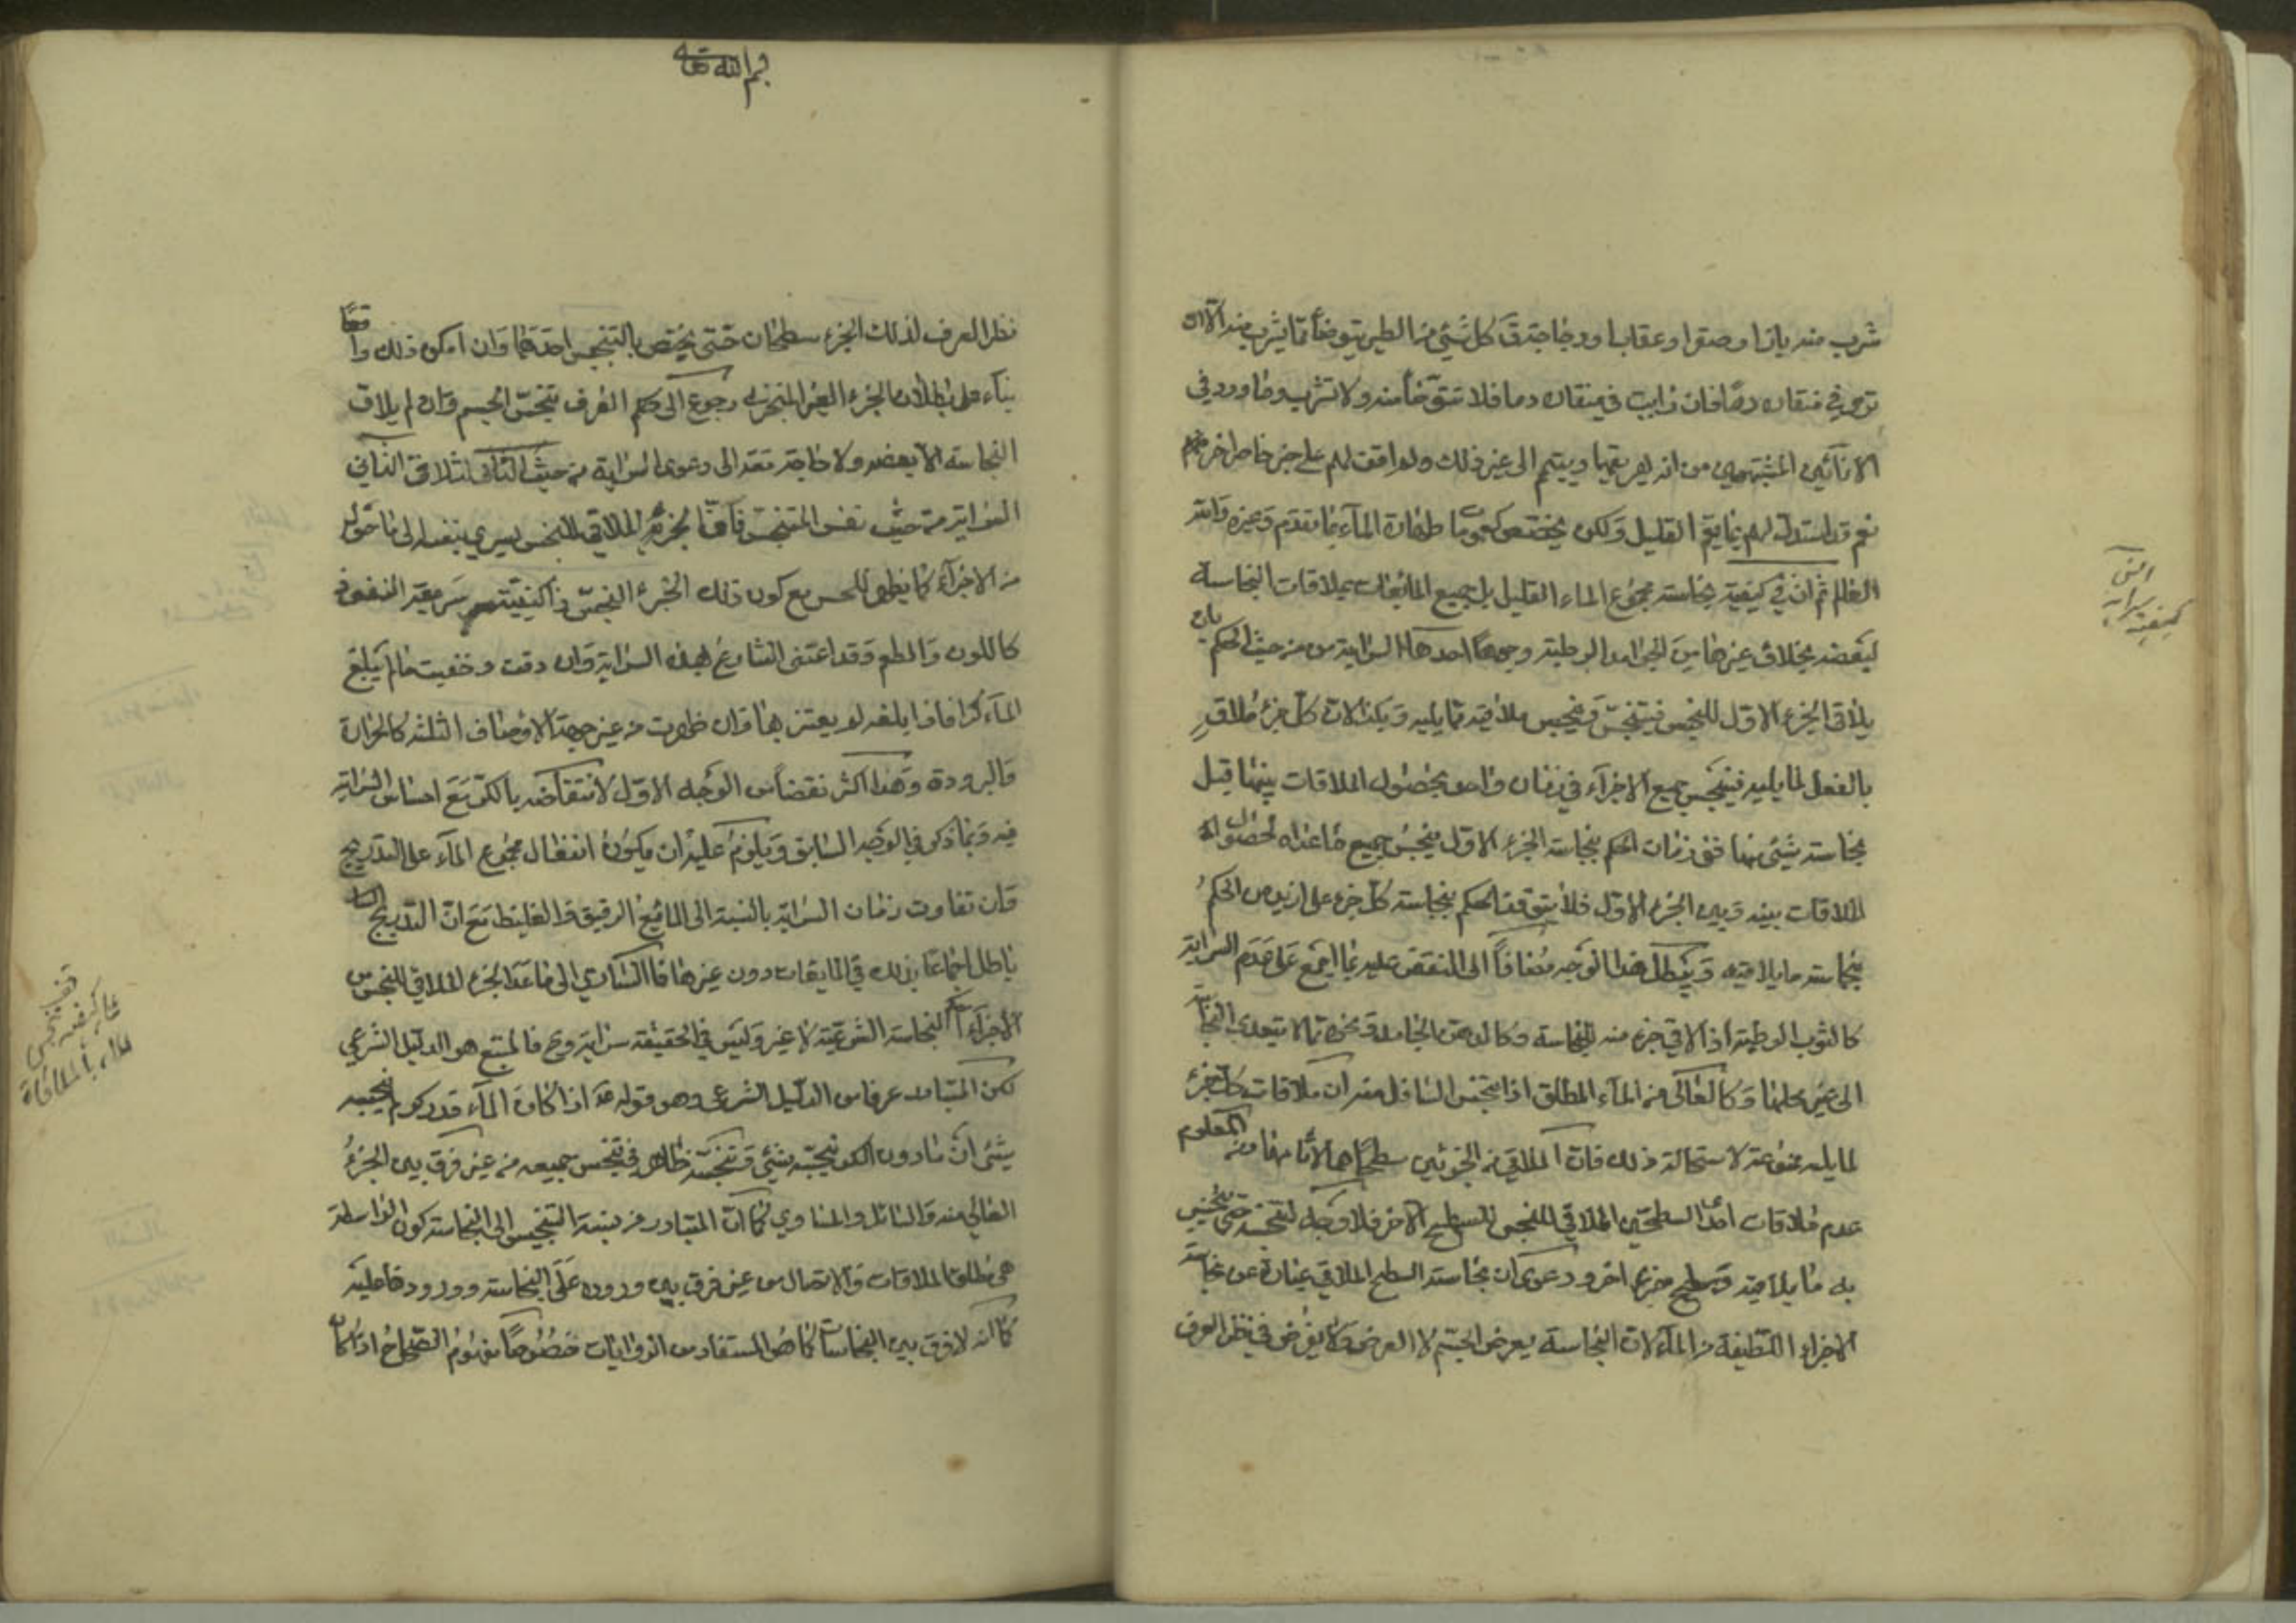 شرب منه باز او صقر او عقاب او دجاجة ق كل شئ من الطير يتوضأ مما يشرب منه الا ان
ترى في منقاره دما فان رايت في منقاره دما فلا تتوضأ منه ولا تشرب وما ورد في
الانائين المشتبهين من انه يهريقهما ويتيمم الى غير ذلك ولم اقف لهم على خبر خاص اخر
نعم قد استدل لهم بما يعم القليل ولكن يختص بعموما طهارة الماء بما تقدم وغيره والله
العالم ثم ان في كيفية نجاسة مجموع الماء القليل بل جميع المائعات بملاقات النجاسة
لبعضه بخلاف غيرها من الجوامد الرطبة وجوها احدها السراية من حيث الحكم بان
يلاقى الجزء الاول للنجس فيتنجس وينجس ملاقيه مما يليه وهكذا لان كل جزء ملاق
بالفعل لما يليه فينجس جميع الاجزاء في زمان واحد بحصول الملاقات بينهما قبل
نجاسة شئ منها ففي زمان الحكم بنجاسة الجزء الاول ينجس جميع ما عداه لحصول
الملاقات بينه وبين الجزء الاول فلا يتوقف الحكم بنجاسة كل جزء على ازيد من الحكم
بنجاسة ما يلاقيه ويبطل هذا الوجه مضافا الى النقض عليه بما اجمع على عدم السراية
كالثوب الرطبة اذا لاقى جزء منه للنجاسة وكالدهن الجامد ونحوه مما لا يتعدى النجاسة
الى غير محلها وكالعالى من الماء المطلق اذا تنجس السافل منه ان ملاقات كل جزء
لما يليه ممنوعة لاستحالة ذلك فان الملاقى من الجزئين سطحاهما لا تمامهما ومن المعلوم
عدم ملاقات احد السطحين الملاقى للنجس للسطح الاخر فلا وجه لتنجسه حتى ينجس
به ما يلاقيه وسطح جزء اخر ودعوى ان نجاسة السطح الملاقى عبارة عن نجاسة
الاجزاء اللطيفة من الماء لان النجاسة يعرض الجسم لا العرض ولا يفرض في نظر العرف
كيفية سراية النجس
بسم الله تعالى
نظر العرف لذلك الجزء سطحان حتى يختص بالتنجس احدهما وان امكن ذلك واقعا
بناء على بطلان الجزء الغير المتجزى رجوع الى حكم العرف بتنجس الجسم وان لم يلاق
النجاسة الا بعضه ولا حاجة معه الى دعوى السراية من حيث الثانى الثانى
السراية من حيث نفس المتنجس فان الجزء الملاقى للنجس يسري بنفسه الى ما حوله
من الاجزاء كما يظهر للحس مع كون ذلك الجزء النجس ذا كيفية سريعة النفوذ
كاللون والطعم وقد اعتنى الشارع بهذه السراية وان دقت وخفيت ما لم يبلغ
الماء كرا فاذا بلغه لم يعتن بها وان ظهرت من غير جهة الاوصاف الثلثة كالحرارة
والبرودة وهذا اكثر نقضا من الوجه الاول لانتقاضه بالكر مع احساس السراية
فيه وبما ذكر في الوجه السابق ويلزم عليه ان يكون انفعال مجموع الماء على التدريج
وان تفاوت زمان السراية بالنسبة الى المائع الرقيق والغليظ مع ان التدريج
باطل اجماعا بذلك في المايعات دون غيرها فالساري الى ما عدا الجزء الملاقى للنجس من
الاجزاء حكم النجاسة الشرعية لا غير وليس في الحقيقة سراية وح فالمتبع هو الدليل الشرعي
لكن المتبادر عرفا من الدليل الشرعى وهو قوله ع اذا كان الماء قدر كر لم ينجسه
شئ ان ما دون الكر ينجسه شئ وتنجسه ظاهر في تنجس جميعه من غير فرق بين الجزء
العالى منه والسافل والمساوي كما ان المتبادر من نسبة التنجيس الى النجاسة كون الواسطة
هي مطلق الملاقات والاتصال من غير فرق بين وروده على النجاسة وورودها عليه
كما انه لا فرق بين النجاسات كما هو المستفاد من الروايات خصوصا مفهوم الصحاح اذا كان
قف على كيفية تنجس الماء بالملاقاة